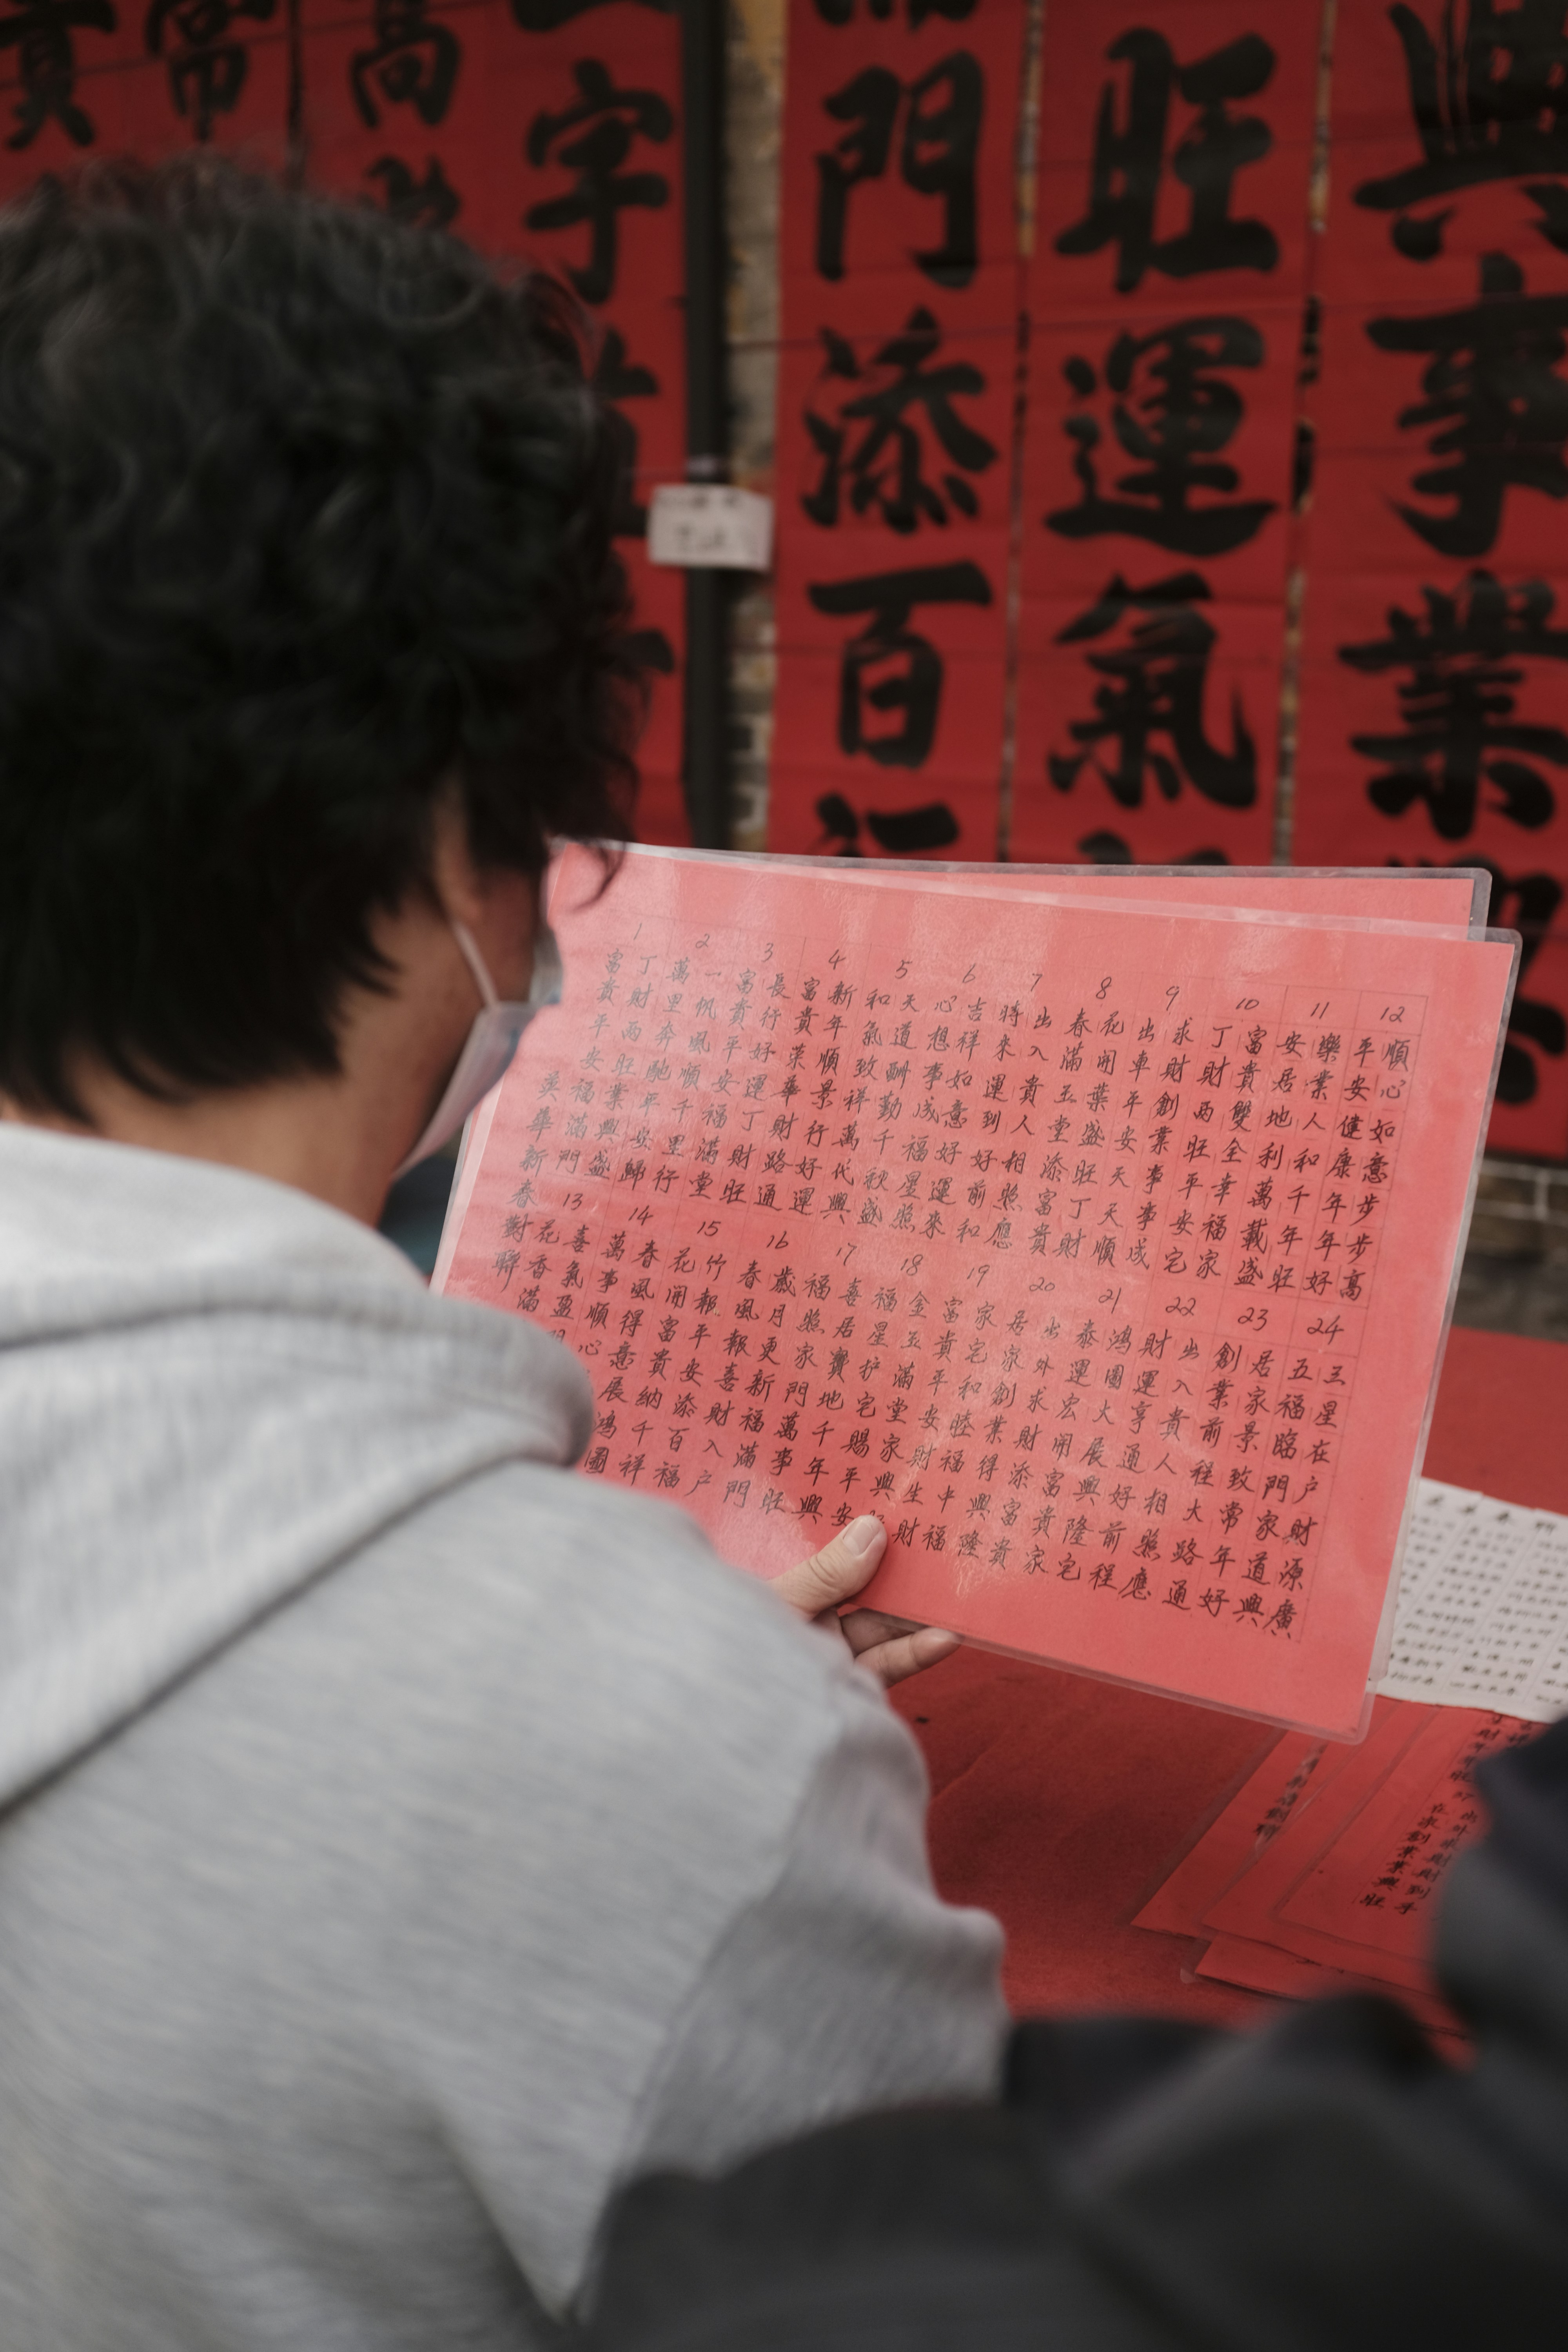 興事業
旺運氣
門添百
字
高
常
貴
1
丁財兩旺業興盛
富貴平安福滿門
2
一帆風順千里行
萬里奔馳年安歸
3
長行好運丁財旺
富貴平安福滿堂
4
新年順景行好運
富貴榮華財路通
5
天道酬勤千秋盛
和氣致祥萬代興
6
吉祥如意好運來
心想事成福星照
7
出入貴人相照應
時來運到好前和
8
花開葉盛旺丁財
春滿玉堂添富貴
9
求財創業事事成
出車平安天天順
10
富貴雙全幸福家
丁財兩旺平安宅
11
樂業人和千年旺
安居地利萬載盛
12
順心如意步步高
平安健康年年好
英華新春對聯
13
喜氣盈
花香滿
14
春風得意展鴻圖
萬事順心
15
竹報平安添百福
花開富貴納千祥
16
歲月更新福滿門
春風報喜財入户
17
喜居寶地千年興
福照家門萬事旺
18
金玉滿堂家興
福星护宅賜平安
19
家宅和睦福中福
富貴平安財生財
20
出外求財添富貴
居家創業得興隆
21
鴻圖大展興隆宅
泰運宏開富貴家
22
出入貴人相照應
財運亨通好前程
23
居家景致常年好
創業前程大路通
24
三星在户財源廣
五福臨門家道興
出外求財財到手
在家創業業興旺